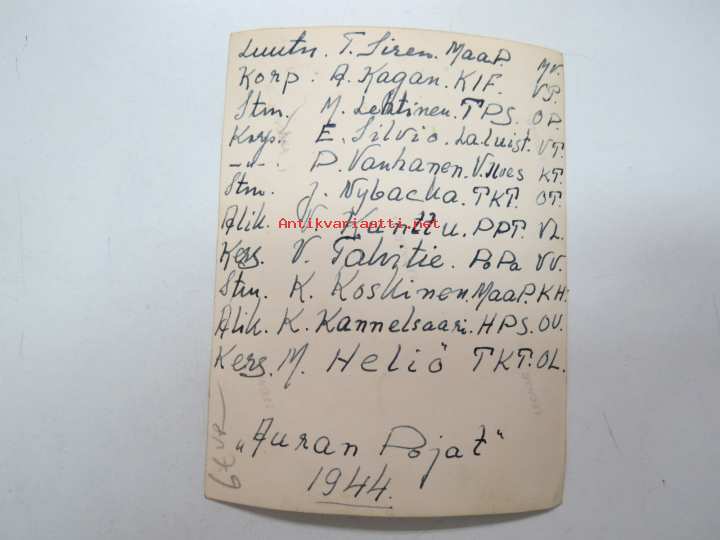 Luutn. T. Siren. MaaP. MV.
Korp: A. Kagan. KIF. VP.
Stm. M. Lehtinen. TPS. OP.
Korp. E. Silvio. La.Luist. VT.
-"- P. Vanhanen. V. KT.
Stm. J. Nybacka. TKT. OT.
Alik. V. Kanttu. PPT. VL.
Antikvariaatti.net
Kers. V. Talvitie. PoPa VV.
Stm. K. Koskinen. MaaP. KH.
Alik. K. Kannelsaari. HPS. OV.
Kers. M. Heliö TKT. OL.
„Auran Pojat"
1944.